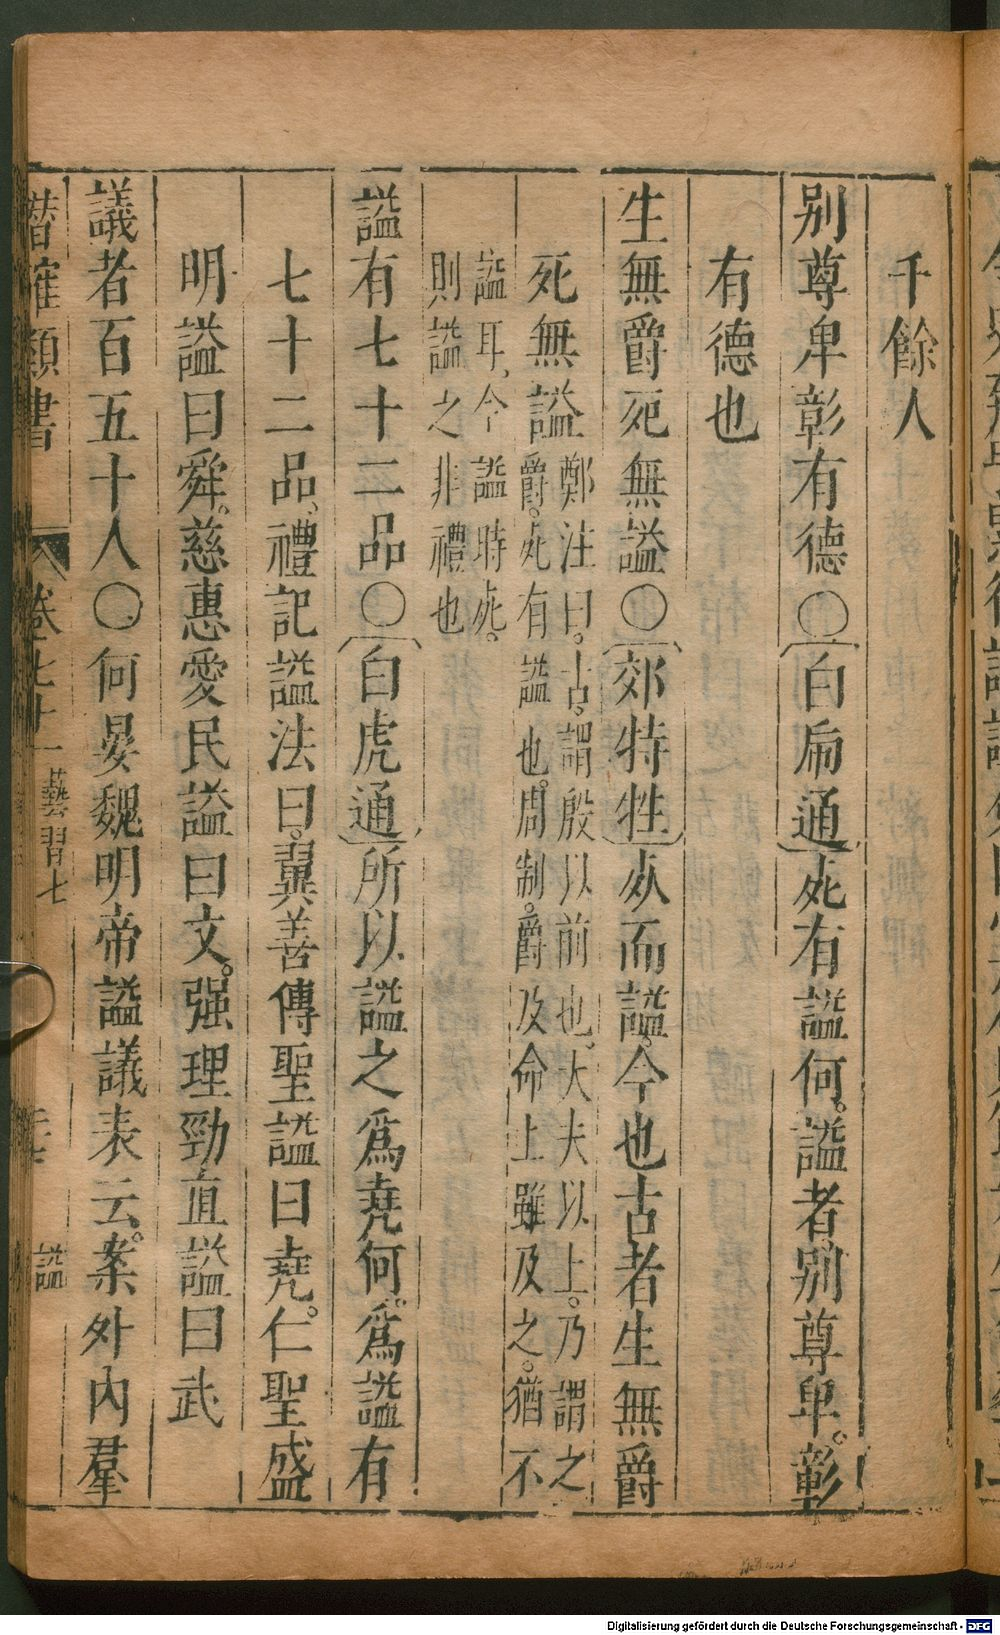 千餘人
別尊卑彰有德〇白虎通死有諡何。諡者別尊卑。彰
有德也
生無爵死無諡〇郊特牲死而諡。今也古者生無爵
死無諡鄭注曰。古。謂殷以前也。大夫以上。乃謂之
爵。死有諡也。周制。爵及命上雖及之。猶不
諡耳、今諡時死。
則諡之非禮也
諡有七十二品〇白虎通所以諡之爲堯何。爲諡有
七十二品、禮記諡法曰。翼善傳聖諡曰堯。仁聖盛
明諡曰舜。慈惠愛民諡曰文。强理勁直諡曰武
議者百五十人〇何晏魏明帝諡議表云。案外內羣
潛確類書
卷七十一
藝習七
諡
Digitalisierung gefördert durch die Deutsche Forschungsgemeinschaft - DFG